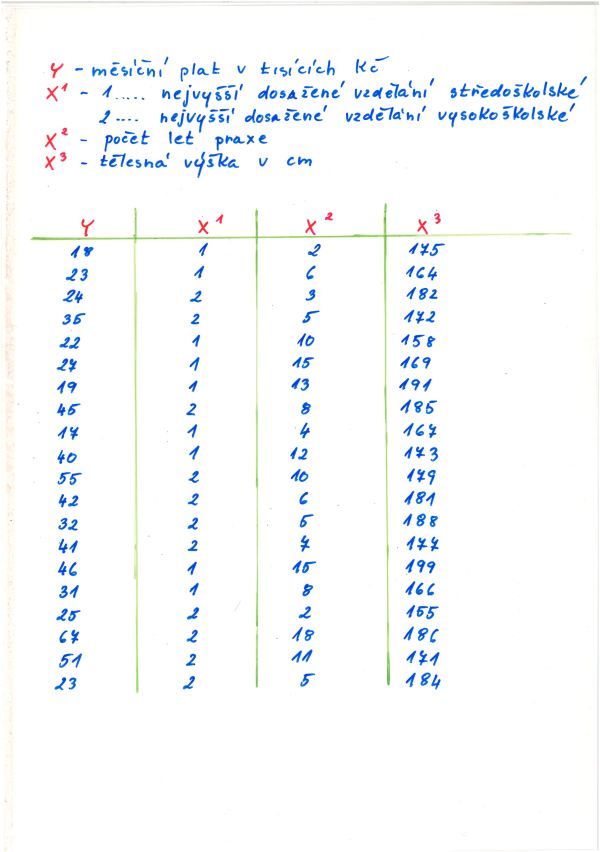 Y - měsíční plat v tisících Kč
X¹ - 1..... nejvyšší dosažené vzdělání středoškolské
2.... nejvyšší dosažené vzdělání vysokoškolské
X² - počet let praxe
X³ - tělesná výška v cm
Y X¹ X² X³
18 1 2 175
23 1 6 164
24 2 3 182
35 2 5 172
22 1 10 158
27 1 15 169
19 1 13 191
45 2 8 185
17 1 4 167
40 1 12 173
55 2 10 179
42 2 6 181
32 2 5 188
41 2 7 177
46 1 15 199
31 1 8 166
25 2 2 155
67 2 18 186
51 2 11 171
23 2 5 184